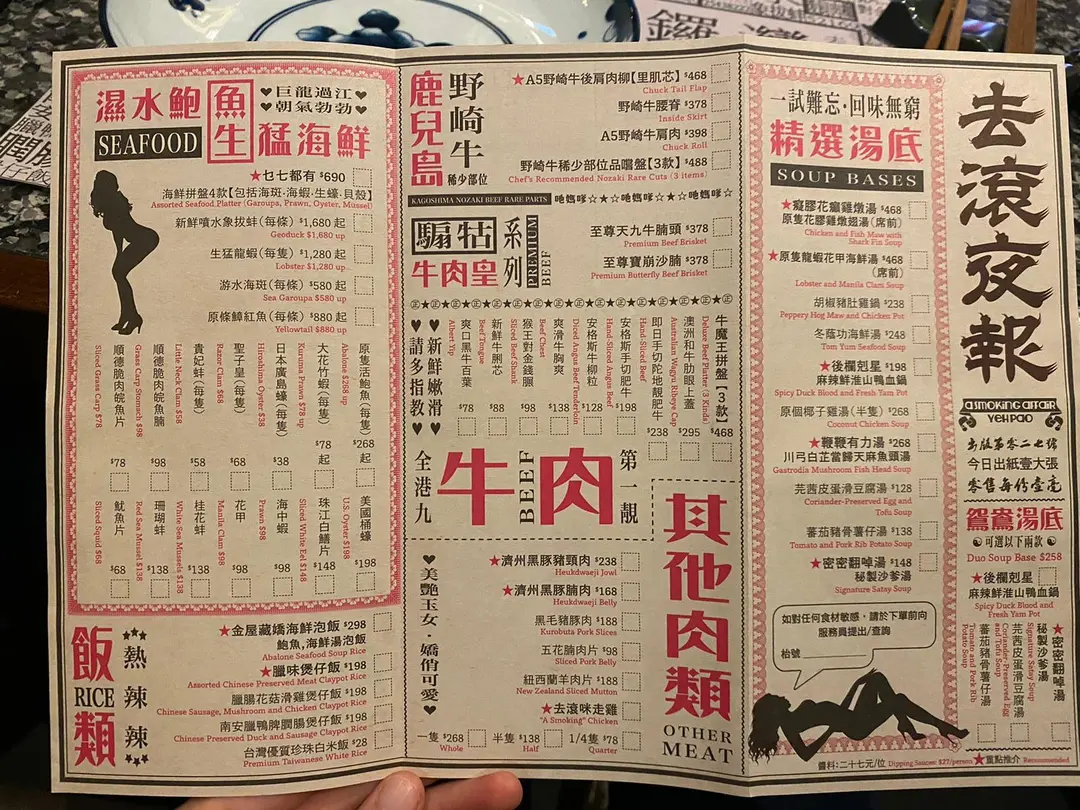 濕水鮑魚生猛海鮮
SEAFOOD
♥巨龍過江♥
♥朝氣勃勃♥
★乜七都有 $690
海鮮拼盤4款【包括海斑·海蝦·生蠔·貝殼】
Assorted Seafood Platter (Garoupa, Prawn, Oyster, Mussel)
新鮮噴水象拔蚌(每條) $1,680 起
Geoduck $1,680 up
生猛龍蝦(每隻) $1,280 起
Lobster $1,280 up
游水海斑(每條) $580 起
Sea Garoupa $580 up
原條鰤魟魚(每條) $880 起
Yellowtail $880 up
原隻活鮑魚(每隻) $268
Abalone $268 up
大花竹蝦(每隻) $78 起
Kuruma Prawn $78 up
日本廣島蠔(每隻) $38
Hiroshima Oyster $38
聖子皇(每隻) $68
Razor Clam $68
貴妃蚌(每隻) $58
Little Neck Clam $58
順德脆肉皖魚腩 $98
Grass Carp Stomach $98
順德脆肉皖魚片 $78
Sliced Grass Carp $78
美國桶蠔 $198
U.S. Oyster $198
珠江白鱔片 $148
Sliced White Eel $148
海中蝦 $98
Prawn $98
花甲 $98
Manila Clam $98
桂花蚌 $138
White Sea Mussels $138
珊瑚蚌 $138
Red Sea Mussel $138
魷魚片 $68
Sliced Squid $68
飯類
RICE
熱辣辣
★金屋藏嬌海鮮泡飯 $298
鮑魚,海鮮湯泡飯
Abalone Seafood Soup Rice
★臘味煲仔飯 $198
Assorted Chinese Preserved Meat Claypot Rice
臘腸花菇滑雞煲仔飯 $198
Chinese Sausage, Mushroom and Chicken Claypot Rice
南安臘鴨脾膶腸煲仔飯 $198
Chinese Preserved Duck and Sausage Claypot Rice
台灣優質珍珠白米飯 $28
Premium Taiwanese White Rice
鹿兒島野崎牛
稀少部位
KAGOSHIMA NOZAKI BEEF RARE PARTS
★A5野崎牛後肩肉柳【里肌芯】 $468
Chuck Tail Flap
野崎牛腰脊 $378
Inside Skirt
A5野崎牛肩肉 $398
Chuck Roll
野崎牛稀少部位品嚐盤【3款】 $488
Chef's Recommended Nozaki Rare Cuts (3 items)
騸牯系列
牛肉皇
PREMIUM BEEF
至尊天九牛腩頭 $378
Premium Beef Brisket
至尊寶崩沙腩 $378
Premium Butterfly Beef Brisket
牛魔王拼盤【3款】 $468
Deluxe Beef Platter (3 Kinds)
澳洲和牛肋眼上蓋 $295
Australian Wagyu Ribeye Cap
即日手切陀地靚肥牛 $238
Hand-Sliced Beef
安格斯手切肥牛 $198
Hand-Sliced Angus Beef
安格斯牛柳粒 $128
Diced Beef Tenderloin
爽滑牛胸爽 $138
Beef Chest
猴王對金錢𦟌 $98
Sliced Beef Shank
新鮮牛脷芯 $88
Beef Tongue
爽口黑牛百葉 $78
Albert Yip
♥新鮮嫩滑♥
♥請多指教♥
全港九
牛肉
BEEF
第一靚
其他肉類
OTHER MEAT
♥美艷玉女·嬌俏可愛♥
★濟州黑豚豬頸肉 $238
Heukdwaeji Jowl
★濟州黑豚腩肉 $168
Heukdwaeji Belly
黑毛豬豚肉 $188
Kurobuta Pork Slices
五花腩肉片 $98
Sliced Pork Belly
紐西蘭羊肉片 $188
New Zealand Sliced Mutton
★去滾咪走雞
"A Smoking" Chicken
一隻 $268
Whole
半隻 $138
Half
1/4隻 $78
Quarter
一試難忘·回味無窮
精選湯底
SOUP BASES
★癡膠花癲雞燉湯 $468
原隻花膠雞燉翅湯(席前)
Chicken and Fish Maw with
Shark Fin Soup
★原隻龍蝦花甲海鮮湯 $468
(席前)
Lobster and Manila Clam Soup
胡椒豬肚雞鍋 $238
Peppery Hog Maw and Chicken Pot
冬蔭功海鮮湯 $248
Tom Yum Seafood Soup
★後欄剋星 $198
麻辣鮮淮山鴨血鍋
Spicy Duck Blood and Fresh Yam Pot
原個椰子雞湯(半隻) $268
Coconut Chicken Soup
★鞭鞭有力湯 $268
川弓白芷當歸天麻魚頭湯
Gastrodia Mushroom Fish Head Soup
芫茜皮蛋滑豆腐湯 $128
Coriander-Preserved Egg and
Tofu Soup
蕃茄豬骨薯仔湯 $138
Tomato and Pork Rib Potato Soup
★密密翻啅湯 $148
秘製沙爹湯
Signature Satay Soup
如對任何食材敏感，請於下單前向
服務員提出/查詢
枱號
去滾夜報
A SMOKING AFFAIR
YEH PAO
出版第零二七緝
今日出紙壹大張
零售每份壹毫
鴛鴦湯底
可選以下兩款
Duo Soup Base $258
★後欄剋星
麻辣鮮淮山鴨血鍋
Spicy Duck Blood and
Fresh Yam Pot
★密密翻啅湯
秘製沙爹湯
Signature Satay Soup
芫茜皮蛋滑豆腐湯
Coriander-Preserved Egg
and Tofu Soup
蕃茄豬骨薯仔湯
Tomato and Pork Rib
Potato Soup
醬料:二十七元/位 Dipping Sauces: $27/person
★重點推介 Recommended